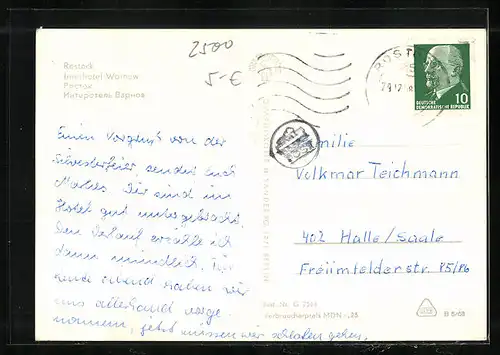 2500
5-€
Rostock
Interhotel Warnow
Росток
Интеротель Варнов
DEUTSCHE
DEMOKRATISCHE REPUBLIK
10
Einen Vorgruß von der
Silvesterfeier sendet Euch
Marlies. Wir sind im
Hotel gut untergebracht.
Den Verlauf erzähle ich
dann mündlich. Für
heute abend haben wir
uns allerhand vorge-
nommen, jetzt müssen wir schlafen gehen.
Familie
Volkmar Teichmann
402 Halle/Saale
Freiimfelderstr. 85/86
Best.-Nr. G 7564
Verbraucherpreis MDN -,25
B 5/68